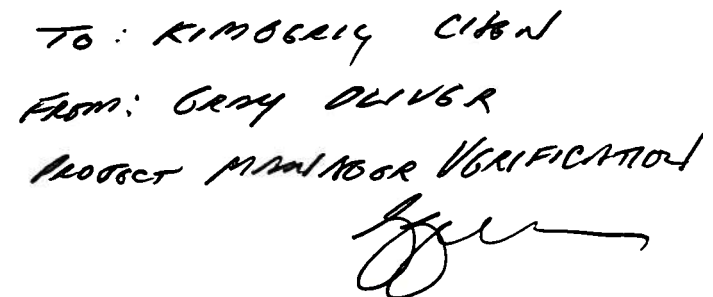 TO: KIMBERLY CHEN
FROM: GRAY OLIVER
PROJECT MANAGER VERIFICATION